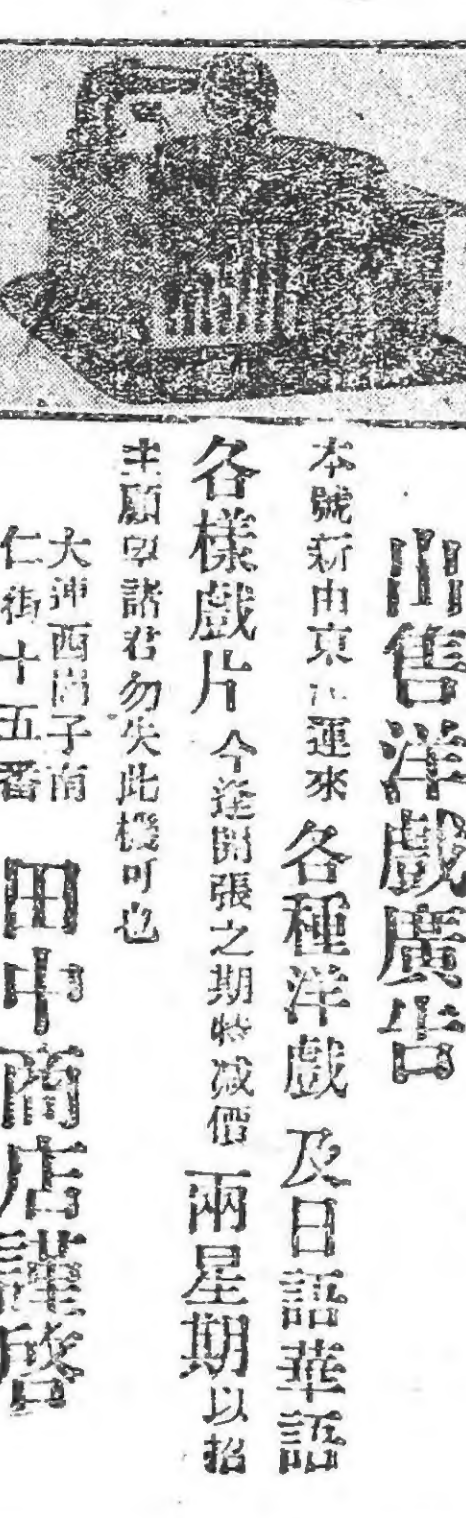 出售洋戲廣告
本號新由東 運來各種洋戲及日語華語
各樣戲片今逢開張之期特減價兩星期以招
主顧 諸君勿失此機可也
大連西崗子南
仁街十五番
田中商店謹啓